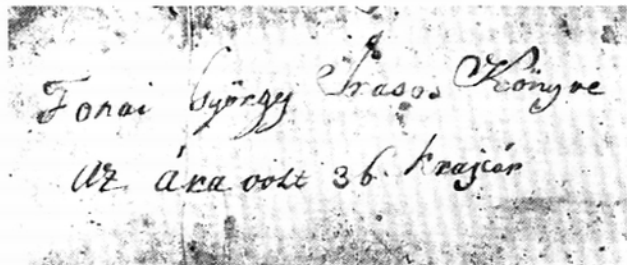 Tonai György Irasos Könyve
Az ára volt 36. krajcár